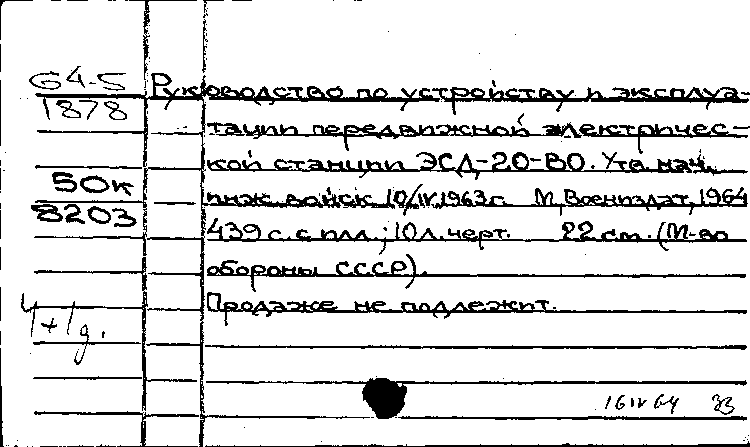 64-5
1878
50к
8203
4+1д.
Руководство по устройству и эксплуа-
тации передвижной электричес-
кой станции ЭСД-20-ВО. Утв. нач.
инж. войск 10/IV.1963г. М, Воениздат, 1964
439 с. с илл.; 10 л. черт. 22 см. (М-во
обороны СССР).
Продаже не подлежит.
16 IV 64 33